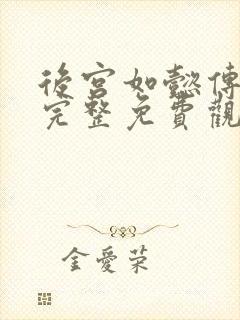 後宮如懿傳
完整免費觀
金愛荣